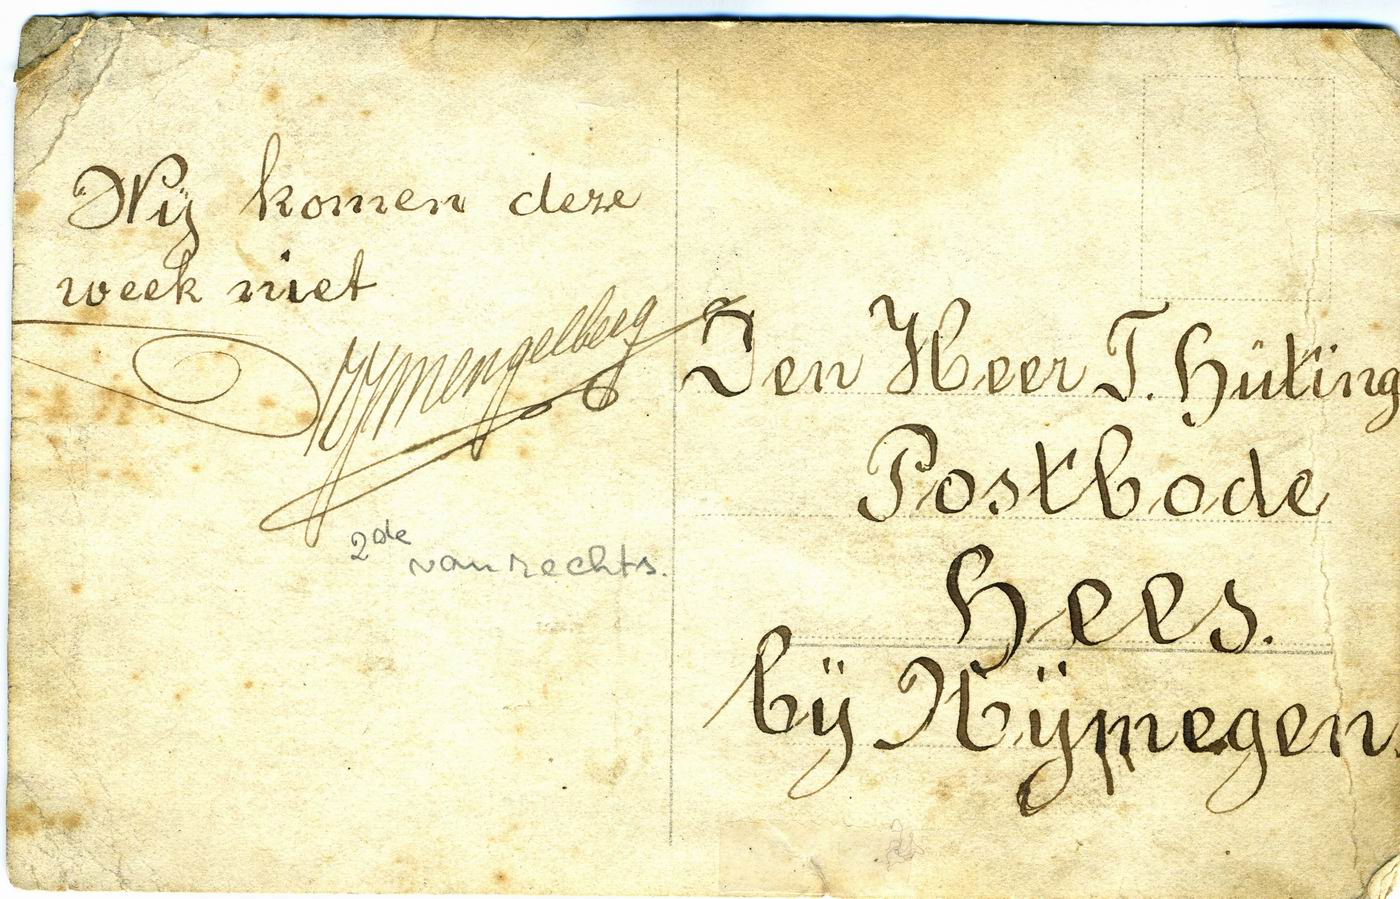 Wij komen deze
week niet
Mengelberg
2de
van rechts.
Den Heer T. Hüting
Postbode
Hees.
bÿ Nÿmegen.